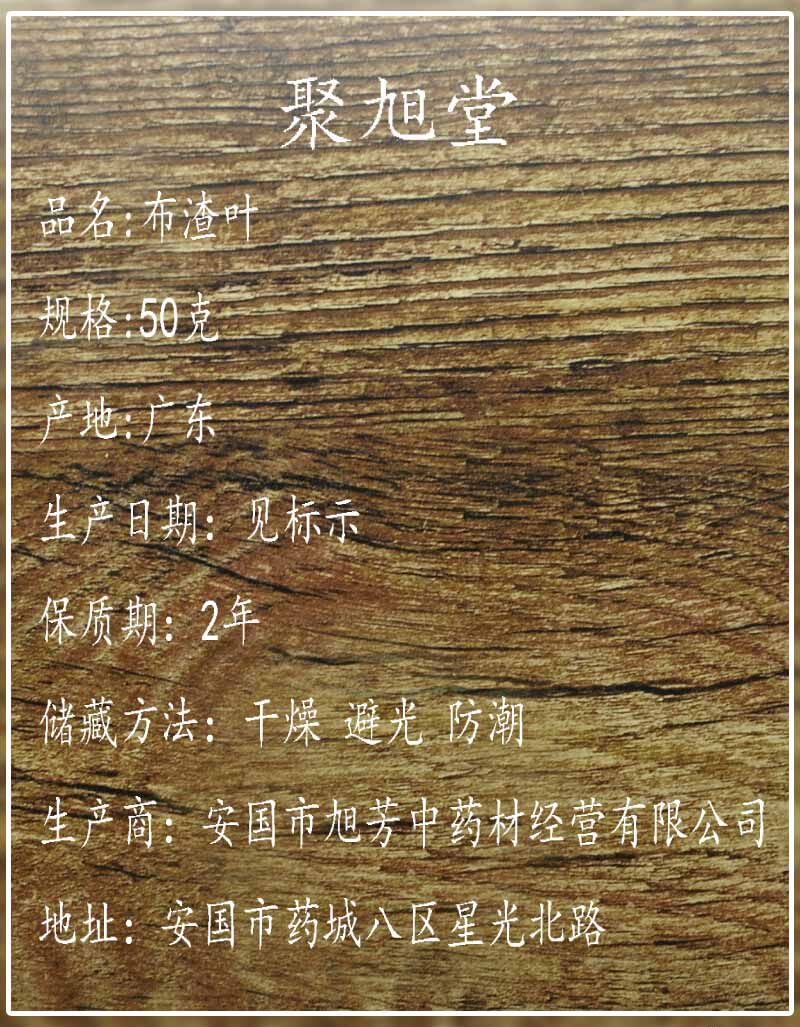 聚旭堂
品名:布渣叶
规格:50克
产地:广东
生产日期：见标示
保质期：2年
储藏方法：干燥 避光 防潮
生产商：安国市旭芳中药材经营有限公司
地址：安国市药城八区星光北路